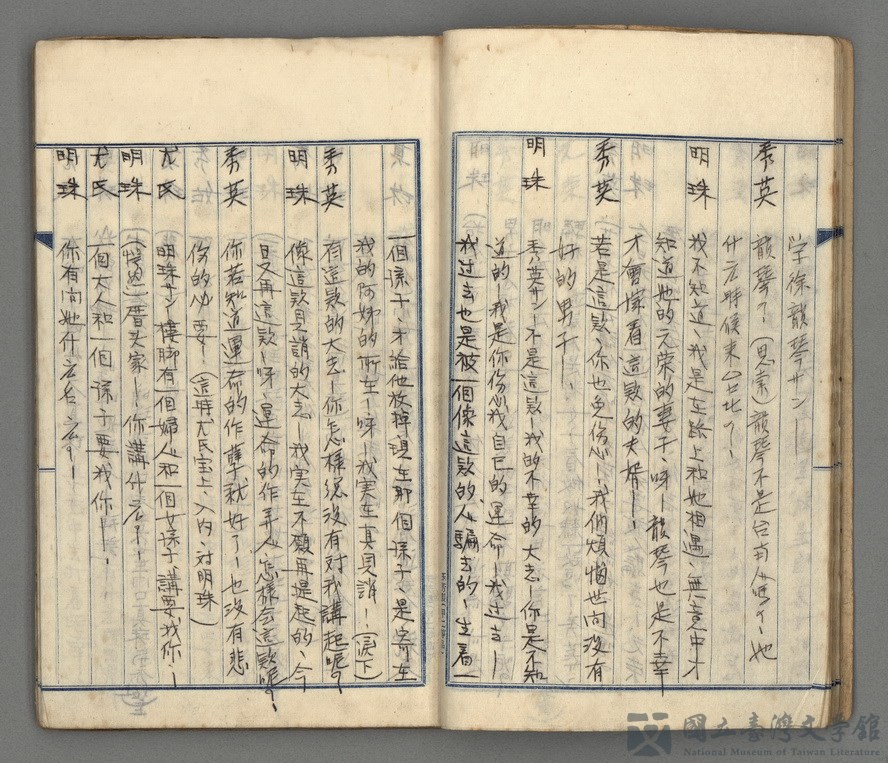 学徐龍琴サン——
秀英 龍琴？(思索)龍琴不是台南人嗎？她
什么時候来台北？
明珠 我不知道、我是在路上和她相遇、無意中才
知道她的元荣的妻子、呀—龍琴也是不幸
才會嫁着這款的夫婿——、
秀英 若是這款、你也免伤心—、我們煩惱世间没有
好的男子—、
明珠 秀英サン—不是這款—我的不幸的大志—你是不知
道的、我是你伤心我自己的運命—我过去—
我过去也是被一個像這款的人騙去的、生着一
一個孩子、才給他放掉、現在那個孩子、是寄在
我的阿姊的所在—呀—我実在真見誚——(淚下)
秀英 有這款的大志—你怎樣总没有对我講起呢？
明珠 像這款見誚的大志 我実在不願再提起的、今
日又再這款—呀、運命的作弄人怎樣会這款呢？
秀英 你若知道運命的作孽就好了—也没有悲
伤的必要—(這時尤氏 上、入内、対明珠)
尤氏 明珠サン樓脚有一個婦人和一個女孩子講要找你—
明珠 厝头家—、你講什么—
尤氏 一個大人和一個孩子要找你——、
明珠 你有问她什么台么？—
國立臺灣文學館
National Museum of Taiwan Literature